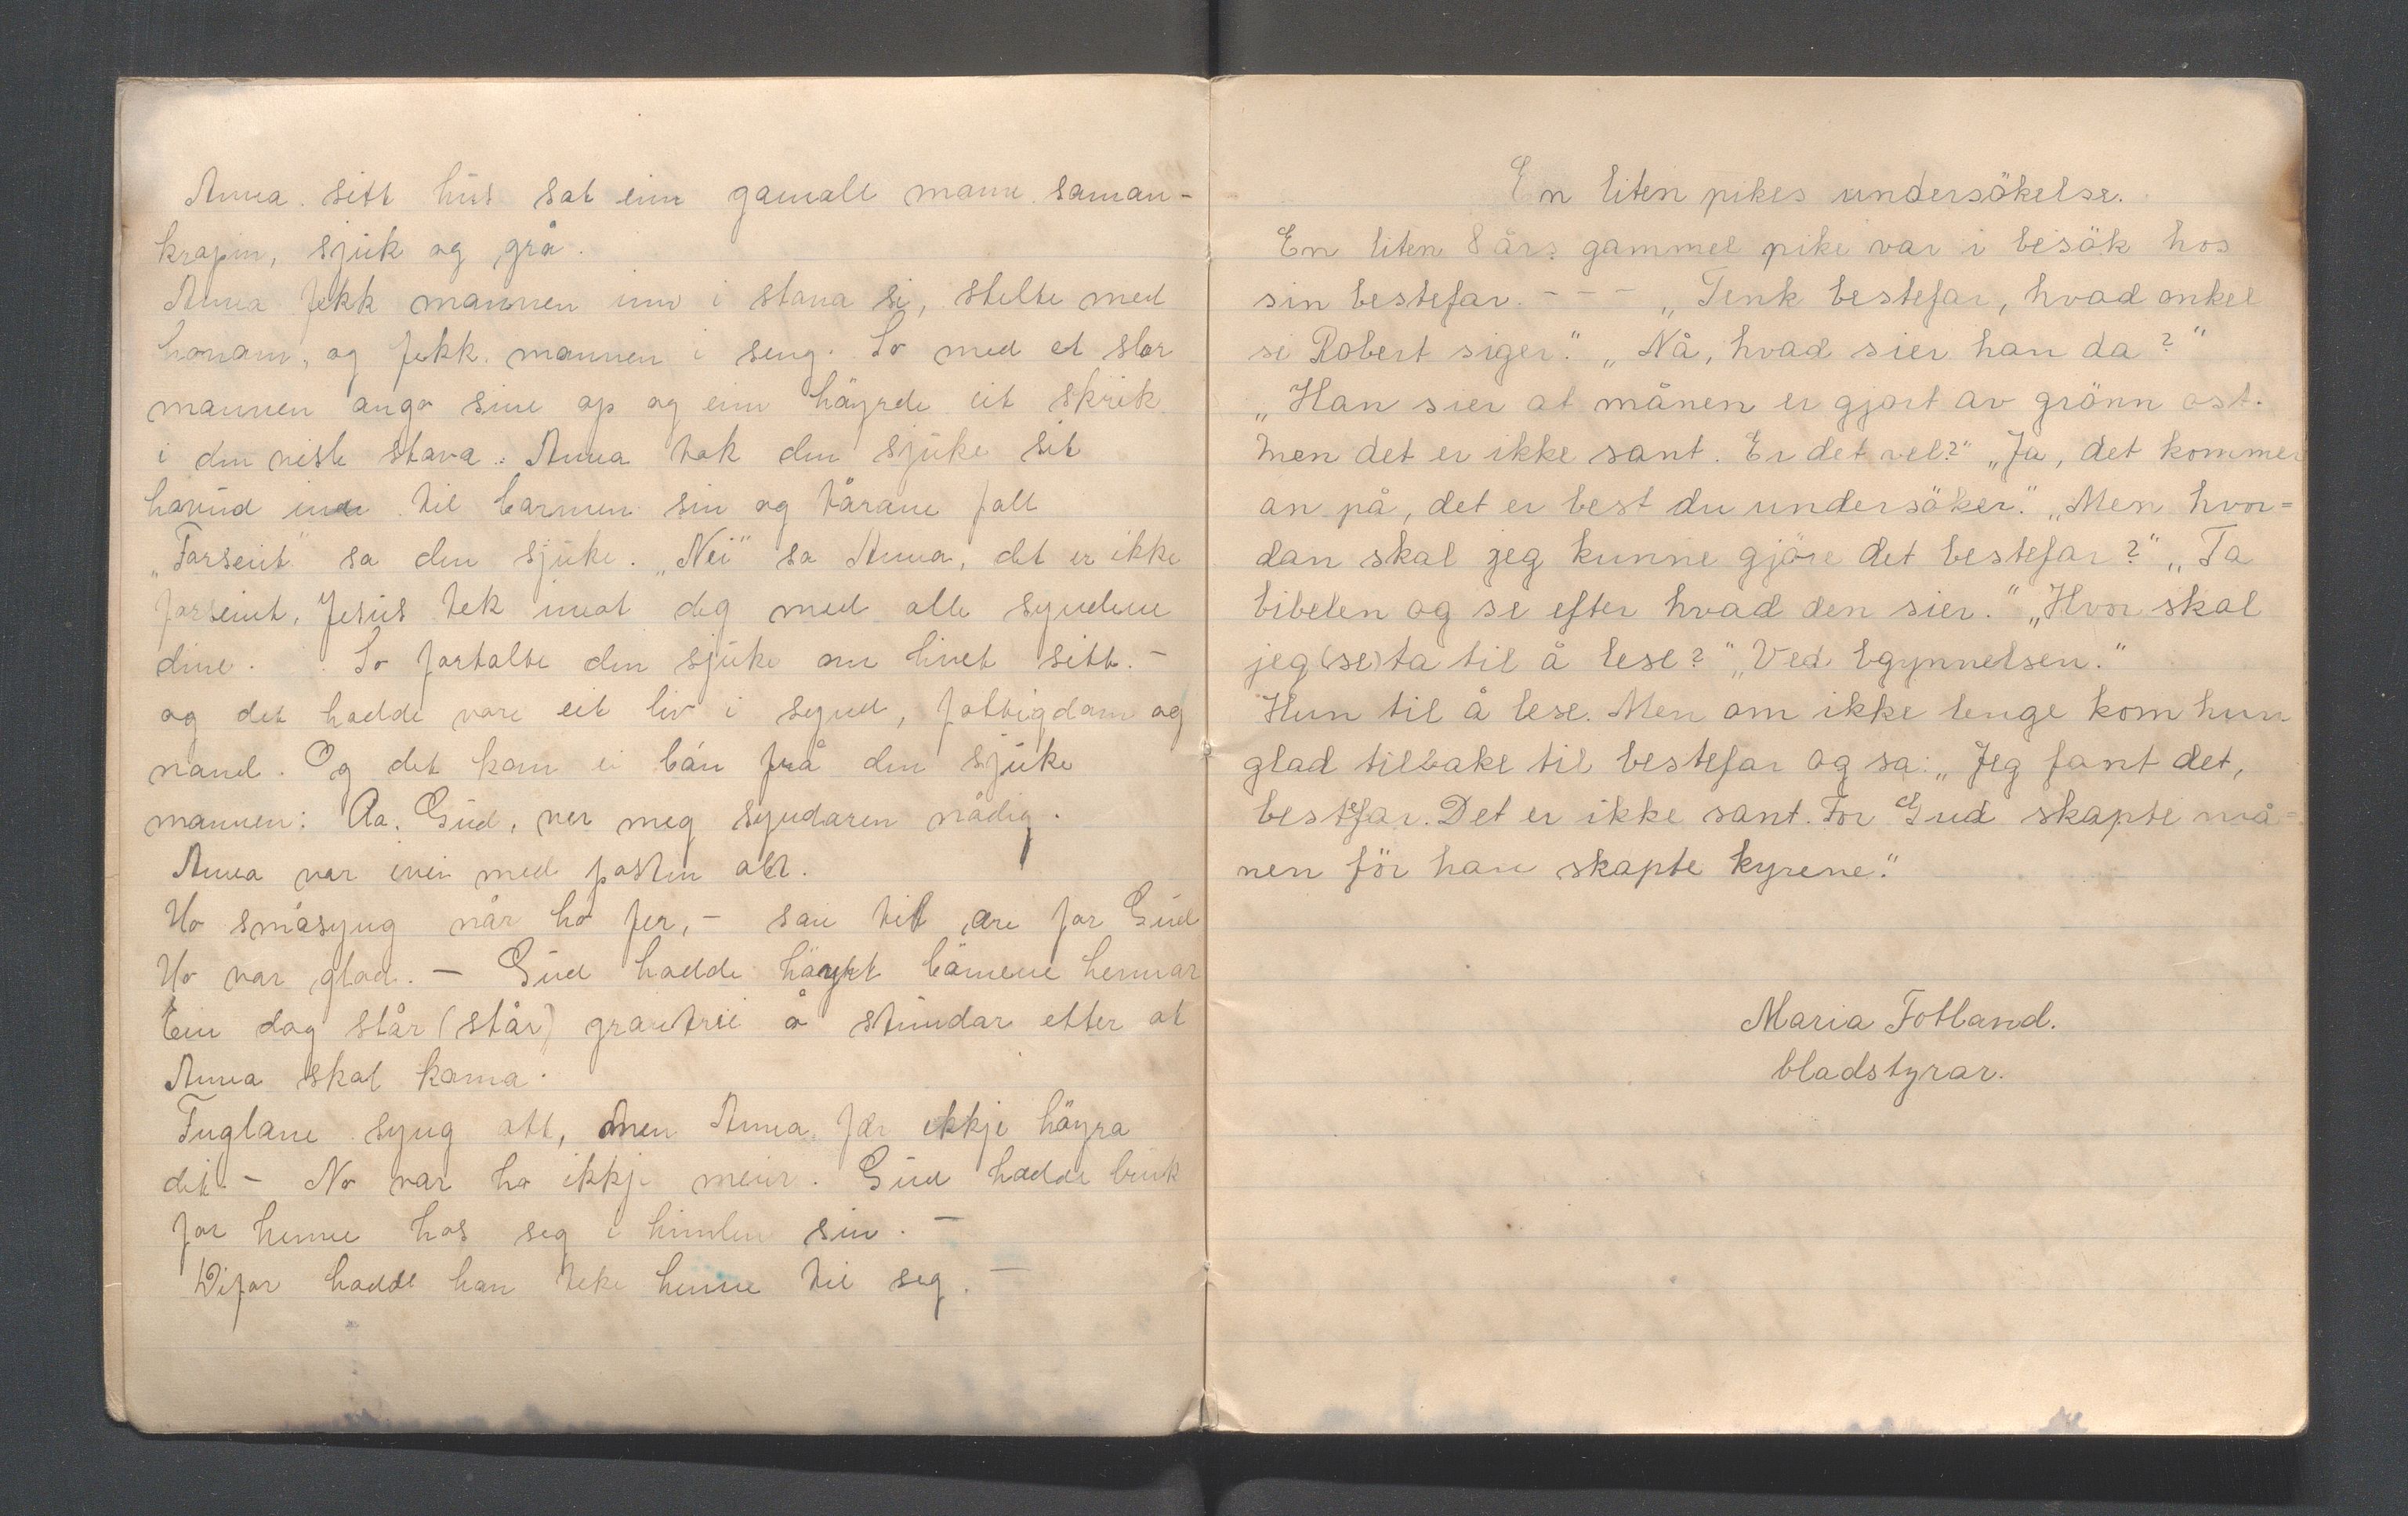 Anna sitt hus sat ein gamall mann saman-
krøpin, sjuk og grå.
Anna fekk mannen inn i stova si, stelte med
honom, og fekk mannen i seng. So med et slor
mannen augo sine op og ein höyrde eit skrik
i den vesle stova. Anna tok den sjuke sit
hovud inn til barmen sin og tårane fall
„Forseint" sa den sjuke. „Nei" sa Anna, det er ikke
forseint, Jesus tek imot deg med alle syndene
dine. So fortalte den sjuke om livet sitt. -
og det hadde vore eit liv i synd, fattigdom og
naud. Og det kom ei bön frå den sjuke
mannen: Aa, Gud, ver meg syndaren nådig.
Anna var ivin med posten att.
Ho småsyng når ho fer, - san til ære for Gud
Ho var glad. - Gud hadde höyrt bönene hennar
Ein dag står (står) grantrei å stundar etter at
Anna skal koma.
Fuglane syng att, men Anna fær ikkje höyra
det. - No var ho ikkje meir. Gud hadde bruk
for henne hos seg i himlen sin. -
Difor hadde han teke henne til seg. -
En liten pikes undersökelse.
En liten 8 års gammel pike var i besök hos
sin bestefar. - - - „Tenk bestefar, hvad onkel
se Robert siger." „Nå, hvad sier han da?"
„Han sier at månen er gjort av grönn ost.
men det er ikke sant. Er det vel?" „Ja, det kommer
an på, det er best du undersöker." „Men hvor=
dan skal jeg kunne gjöre det bestefar?" „Ta
bibelen og se efter hvad den sier." „Hvor skal
jeg (se) ta til å lese?" „Ved bgynnelsen."
Hun til å lese. Men om ikke lenge kom hun
glad tilbake til bestefar og sa: „Jeg fant det,
bestefar. Det er ikke sant. For Gud skapte må=
nen för han skapte kyrene."
Maria Fotland.
bladstyrar.